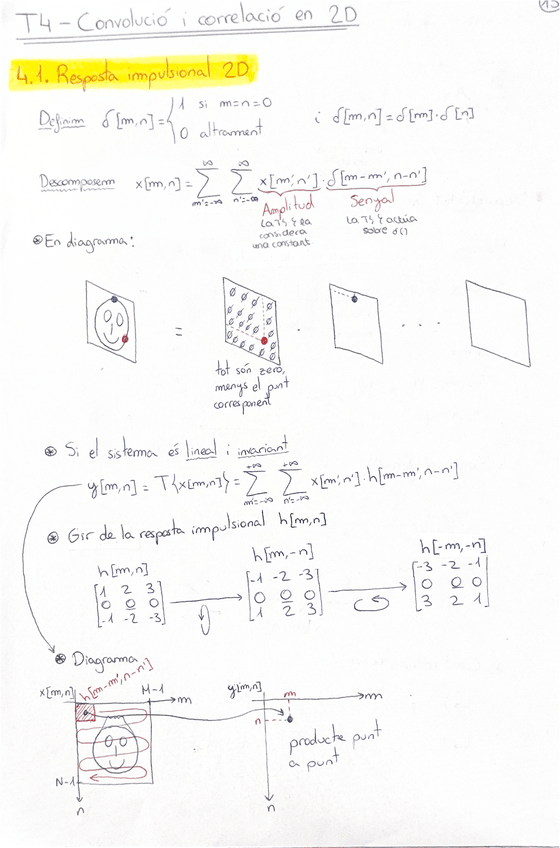 13
T4 - Convolució i correlació en 2D
4.1. Resposta impulsional 2D
Definim δ[m,n] = { 1 si m=n=0
0 altrament
i δ[m,n] = δ[m]·δ[n]
Descomposem x[m,n] = ∑_{m'=-∞}^{∞} ∑_{n'=-∞}^{∞} x[m',n']·δ[m-m', n-n']
Amplitud
La T{·} la
considera
una constant.
Senyal
La T{·} actua
sobre δ()
En diagrama:
= · · · ·
tot són zero,
menys el punt
corresponent
Si el sistema és lineal i invariant
y[m,n] = T{x[m,n]} = ∑_{m'=-∞}^{+∞} ∑_{n'=-∞}^{+∞} x[m',n']·h[m-m', n-n']
Gir de la resposta impulsional h[m,n]
h[m,n] h[m,-n] h[-m,-n]
[1 2 3] [-1 -2 -3] [-3 -2 -1]
[0 0 0] [0 0 0] [0 0 0]
[-1 -2 -3] [1 2 3] [3 2 1]
Diagrama
x[m,n] h[m-m', n-n'] M-1 m
y[m,n] m m
n
producte punt
a punt
N-1
n n